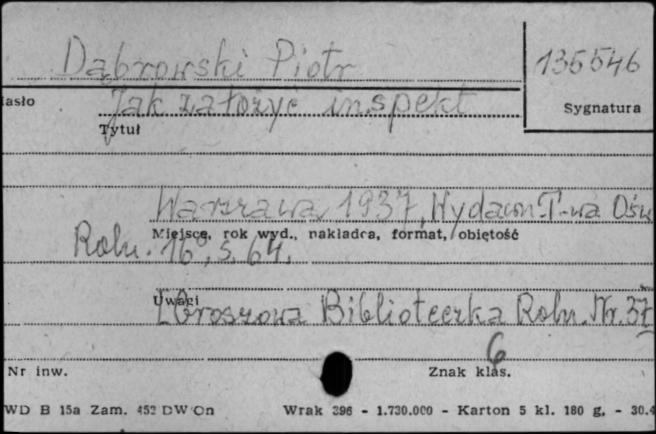 Dąbrowski Piotr
135546
Jak założyć inspekt
asło
Sygnatura
Tytuł
Warszawa 1937, Wydawn. T-wa Ośw
Miejsce, rok wyd., nakładca, format, objętość
Roln. 16°, s. 64.
Uwagi
Groszowa Biblioteczka Roln. Nr. 37
6
Nr inw.
Znak klas.
WD B 15a Zam. 452 DW Cn
Wrak 396 - 1.730.000 - Karton 5 kl. 180 g, - 30.4